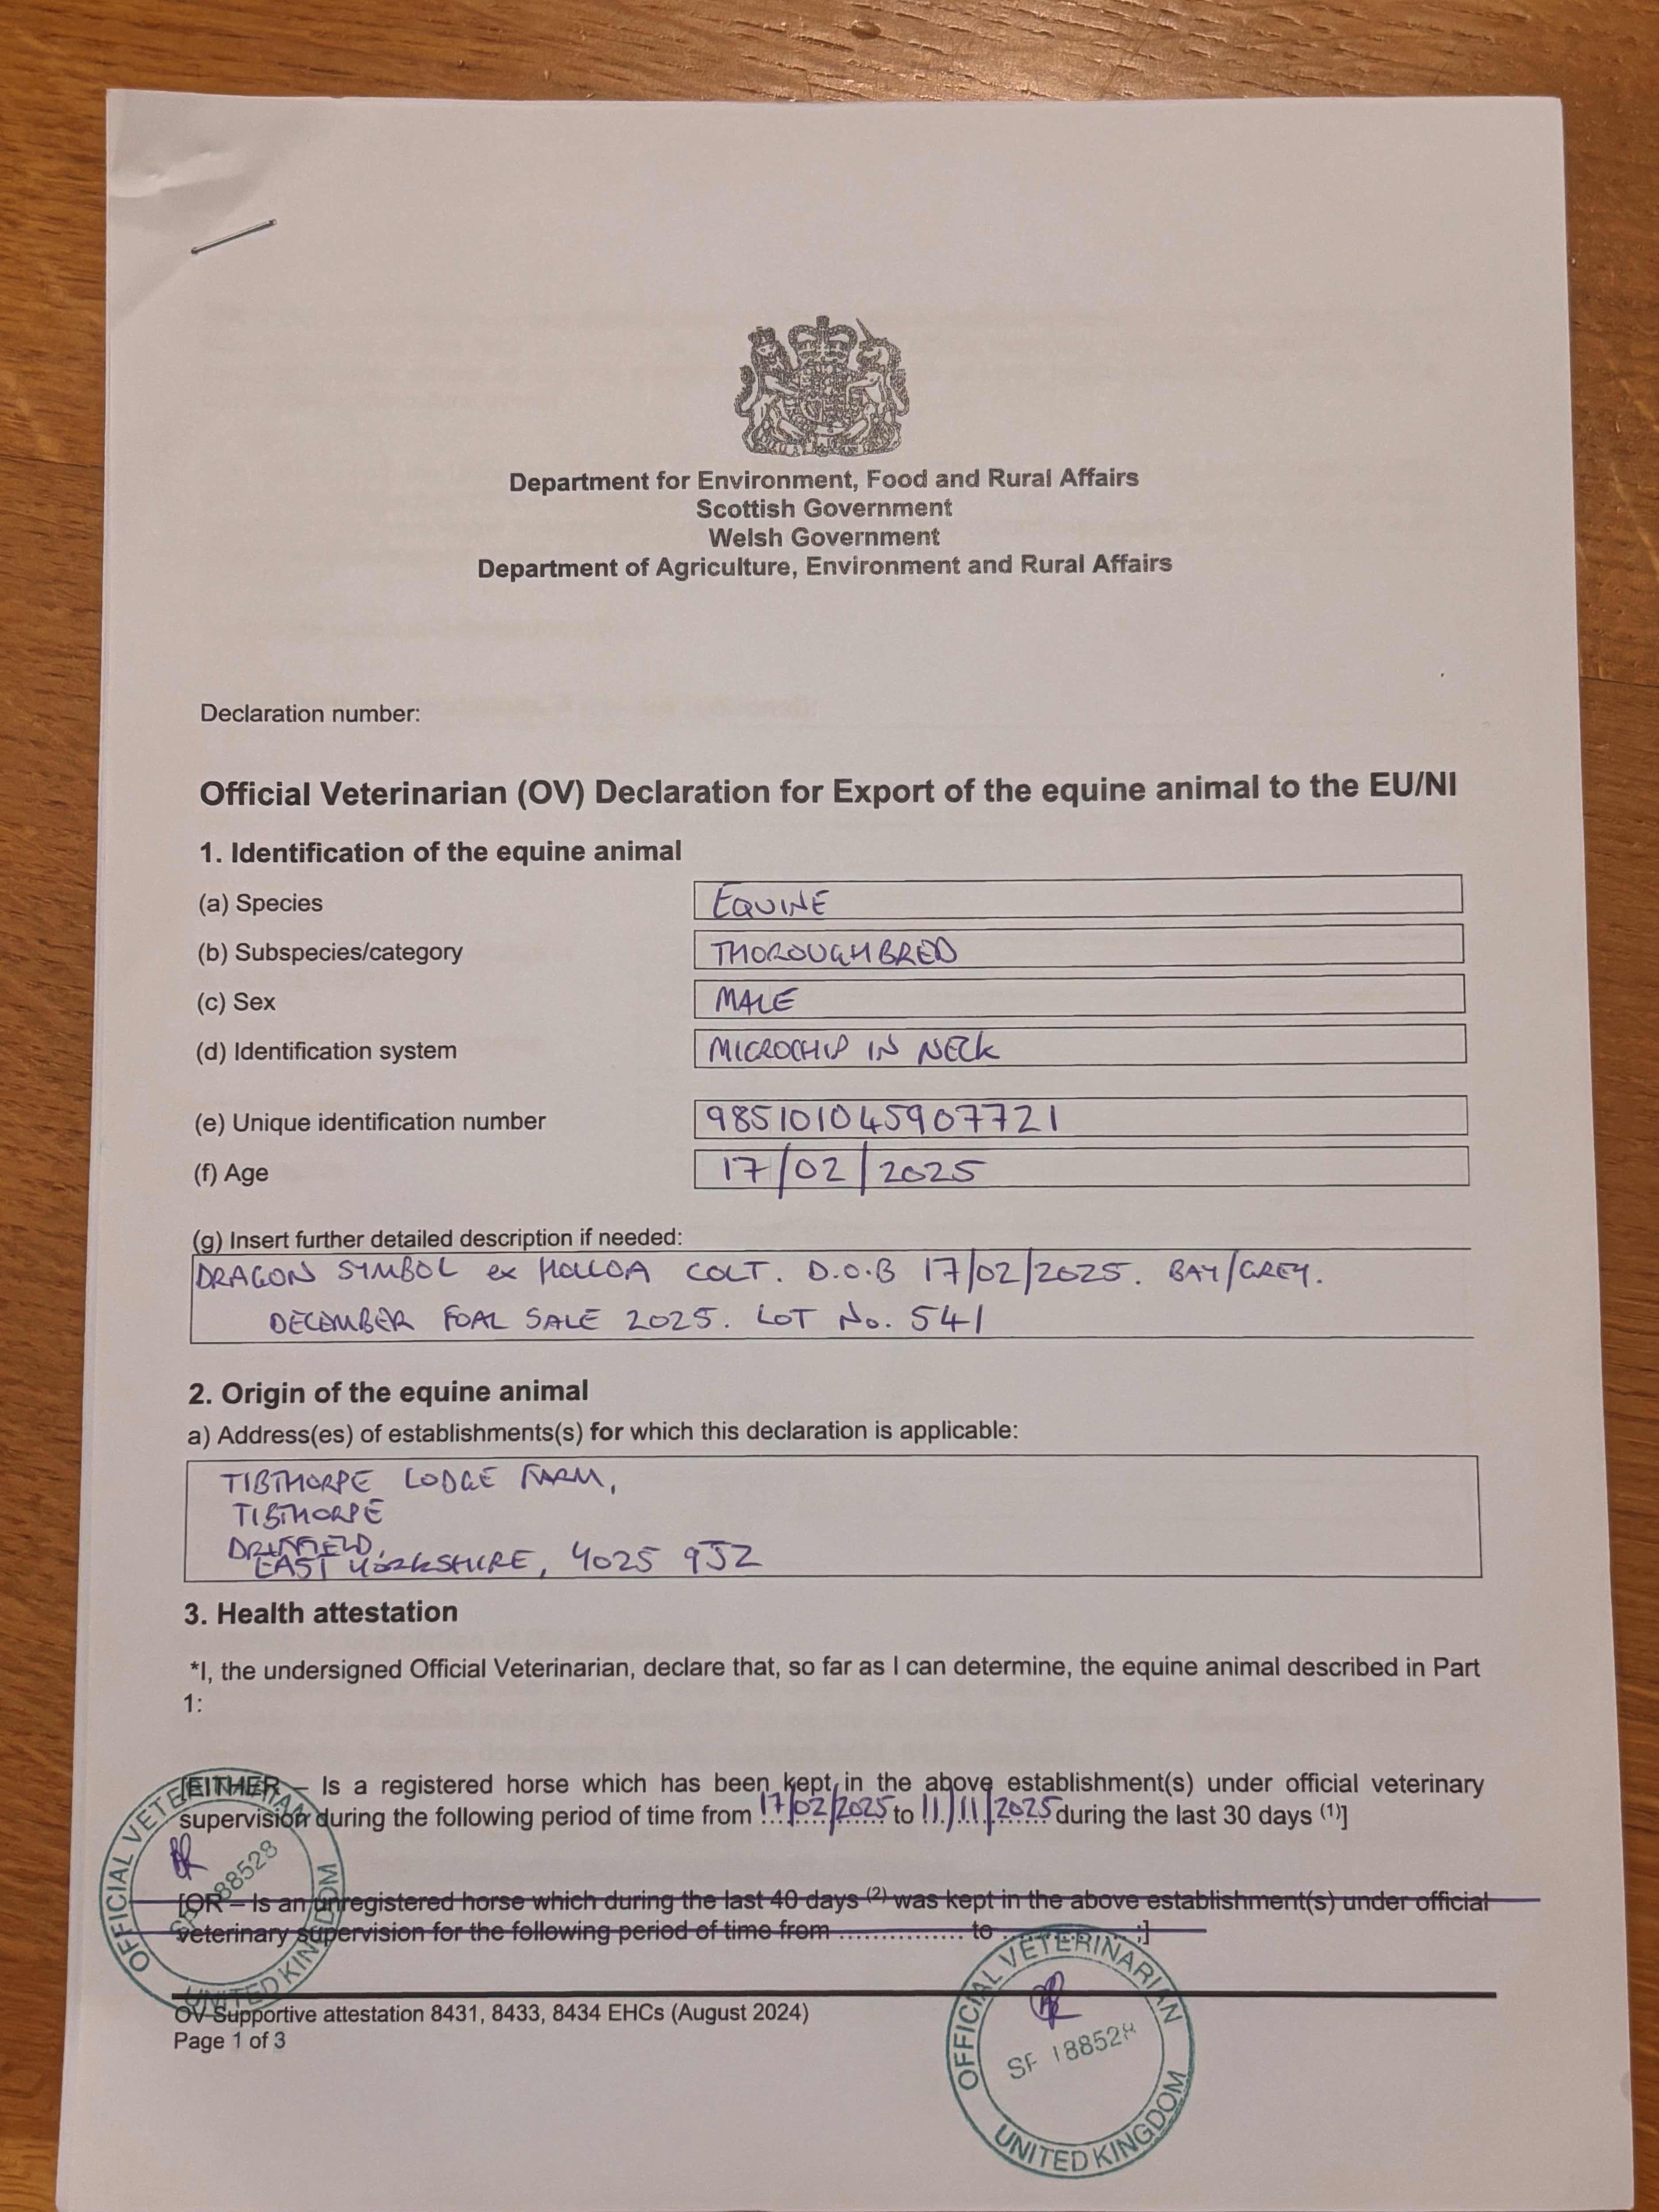 Department for Environment, Food and Rural Affairs
Scottish Government
Welsh Government
Department of Agriculture, Environment and Rural Affairs
Declaration number:
Official Veterinarian (OV) Declaration for Export of the equine animal to the EU/NI
1. Identification of the equine animal
(a) Species EQUINE
(b) Subspecies/category THOROUGHBRED
(c) Sex MALE
(d) Identification system MICROCHIP IN NECK
(e) Unique identification number 985101045907721
(f) Age 17/02/2025
(g) Insert further detailed description if needed:
DRAGON SYMBOL ex HOLLOA COLT. D.O.B 17/02/2025. BAY/GREY.
DECEMBER FOAL SALE 2025. LOT No. 541
2. Origin of the equine animal
a) Address(es) of establishments(s) for which this declaration is applicable:
TIBTHORPE LODGE FARM,
TIBTHORPE
DRIFFIELD,
EAST YORKSHIRE, YO25 9JZ
3. Health attestation
*I, the undersigned Official Veterinarian, declare that, so far as I can determine, the equine animal described in Part
1:
[EITHER – Is a registered horse which has been kept in the above establishment(s) under official veterinary
supervision during the following period of time from 17/02/2025 to 11/11/2025 during the last 30 days (1)]
[OR – Is an unregistered horse which during the last 40 days (2) was kept in the above establishment(s) under official
veterinary supervision for the following period of time from ................ to ................;]
OFFICIAL VETERINARIAN
88528
UNITED KINGDOM
OV Supportive attestation 8431, 8433, 8434 EHCs (August 2024)
Page 1 of 3
OFFICIAL VETERINARIAN
SF 188528
UNITED KINGDOM